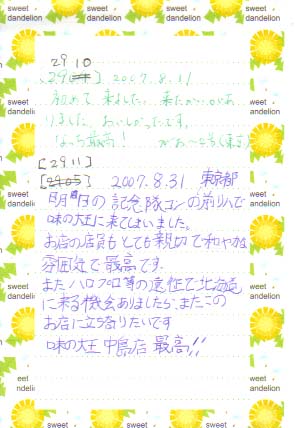 sweet dandelion
sweet dandelion
sweet dandelion
2910
2007.8.11
初めて来ました。来たかいがあ
りました。おいしかったです。
なっち最高!
[2911]
[2905] 2007.8.31 東京都
明日の記念隊コンの前のりで
味の大王に来てしまいました。
お店の店員もとても親切で和やかな
雰囲気で最高です。
またハロプロ等の遠征で北海道
に来る機会ありましたら、またこの
お店に立ち寄りたいです
味の大王 中島店 最高!!
sweet dandelion
sweet dandelion
sweet dandelion